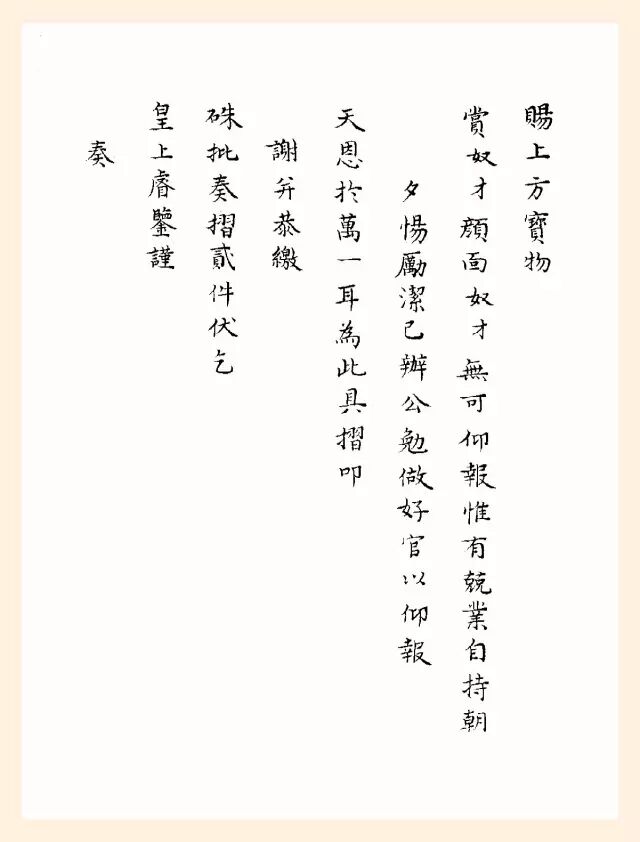 賜上方寶物
賞奴才顏面奴才無可仰報惟有兢業自持朝
夕惕厲潔己辦公勉做好官以仰報
天恩於萬一耳為此具摺叩
謝并恭繳
硃批奏摺貳件伏乞
皇上睿鑒謹
奏